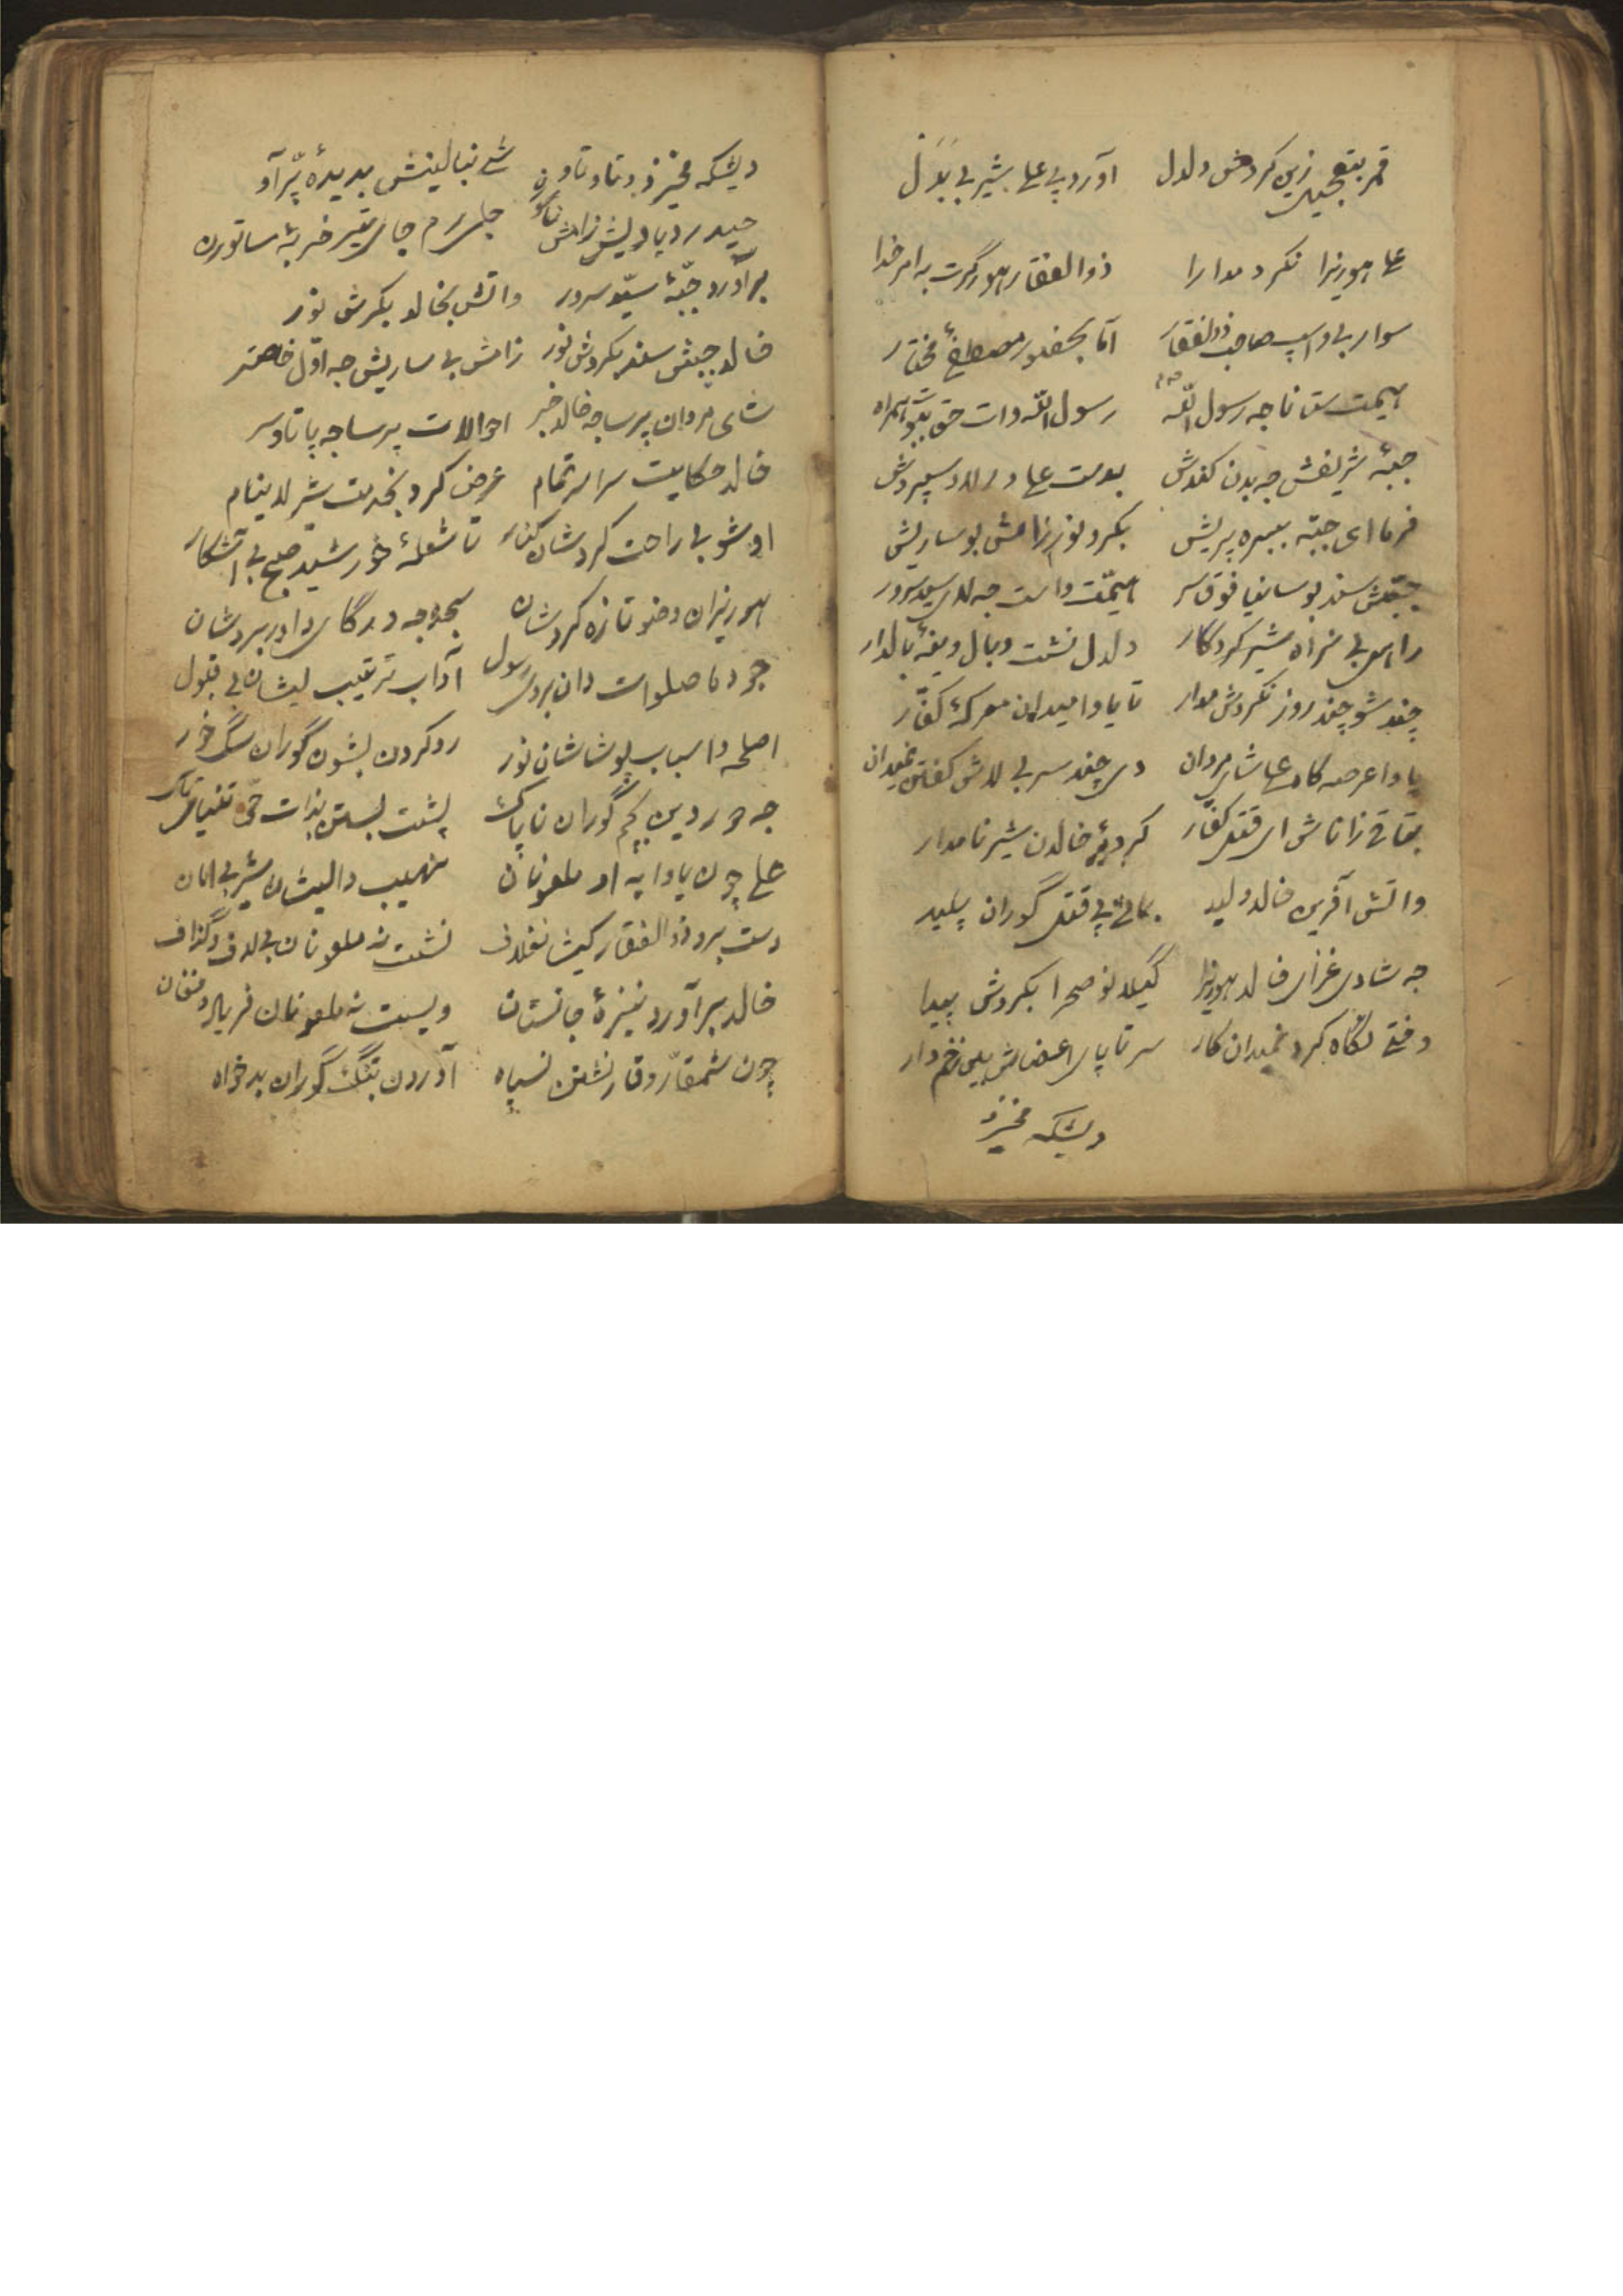 قمر بتعجیل زین کردش دلدل آورد پی علی شیر بی بدل
علی هوریزا نکرد مدارا ذوالفقار هورگرت به امر خدا
سوار بی و اسپ صاحب ذوالفقار آما بحضور مصطفی مختار
همت ستانا جه رسول الله رسول الله وات حق بو همراه
جبهٔ شریفش جه بدن کندش بدست علی دلاور سپردش
فرما ای جبه ببره پریش بکرد نور زامش بو ساریش
جبهش سند بوسانیا فوق سر همت واست جه سید سرور
راهی بی نه راه شیر کردگار دلدل نشت وبال وینهٔ بالدار
چند شو چند روز نکردش مدار تا یاوا میدان معرکهٔ کفار
یاوا عرصه گاه علی شای مردان دی چند سر بی لاش کفتن میدان
بتحقیق زاناش ای قتل کفار کرده خالدن شیر نامدار
واتش آفرین خالد ولید پی قتل گوران پلید
جه شادی غزای خالد هوریزا گیلا نو صحرا بکردش پیدا
وقتی نگاه کرد میدان کار سر تا پای اعضاش بلی زخم دار
دیشکه مخیزد
دیشکه مخیزد وتاو تاون نیا بالینش بدیدهٔ پرآو
حیدر دیا ویش زامش جای تیر ضربهٔ ساتورن
برآورد جبهٔ سید سرور واتش بخالد بکرش نور
خالد جبهش سند بکردش نور زامش بی ساریش جه اول خاصتر
شای مردان پرسا جه خالد خبر احوالات پرسا جه پا تا وسر
خالد حکایت سراسر تمام عرض کرد بخدمت شیر لاینام
او شو بی راحت کردشان کنار تا شعلهٔ خورشید صبح بی آشکار
هوریزان وضو تازه کردشان سجود جه درگای داور بردشان
جو دما صلوات دان بروی رسول آداب ترتیب لیشان بی قبول
اصلحه و اسباب پوشاشان نور رو کردن بشون گوران سگ خور
جه و ردین کچ گوران ناپاک پشت بستن بذات حی تنیای تاک
علی چون یاوا په او ملعونان نهیب دا لیشان شیر بی امان
دست برد ذوالفقار کیشا نغلاف نشت نه ملعونان بی لاف و گزاف
خالد برآورد نیزهٔ جانستان ویست نه ملعونان فریاد و فغان
چون شمقار و قاز نشتن نسپاه آوردن بتنگ گوران بدخواه